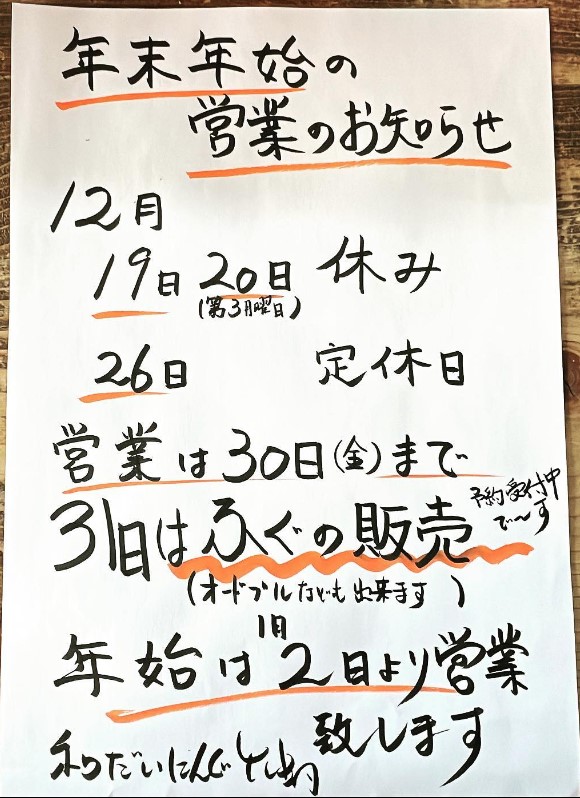 年末年始の
営業のお知らせ
12月
19日 20日 休み
(第3月曜日)
26日 定休日
営業は30日(金)まで
31日はふぐの販売
予約受付中
で〜す
(オードブルなども出来ます)
1月
年始は2日より営業
致します
和だいにんぐ